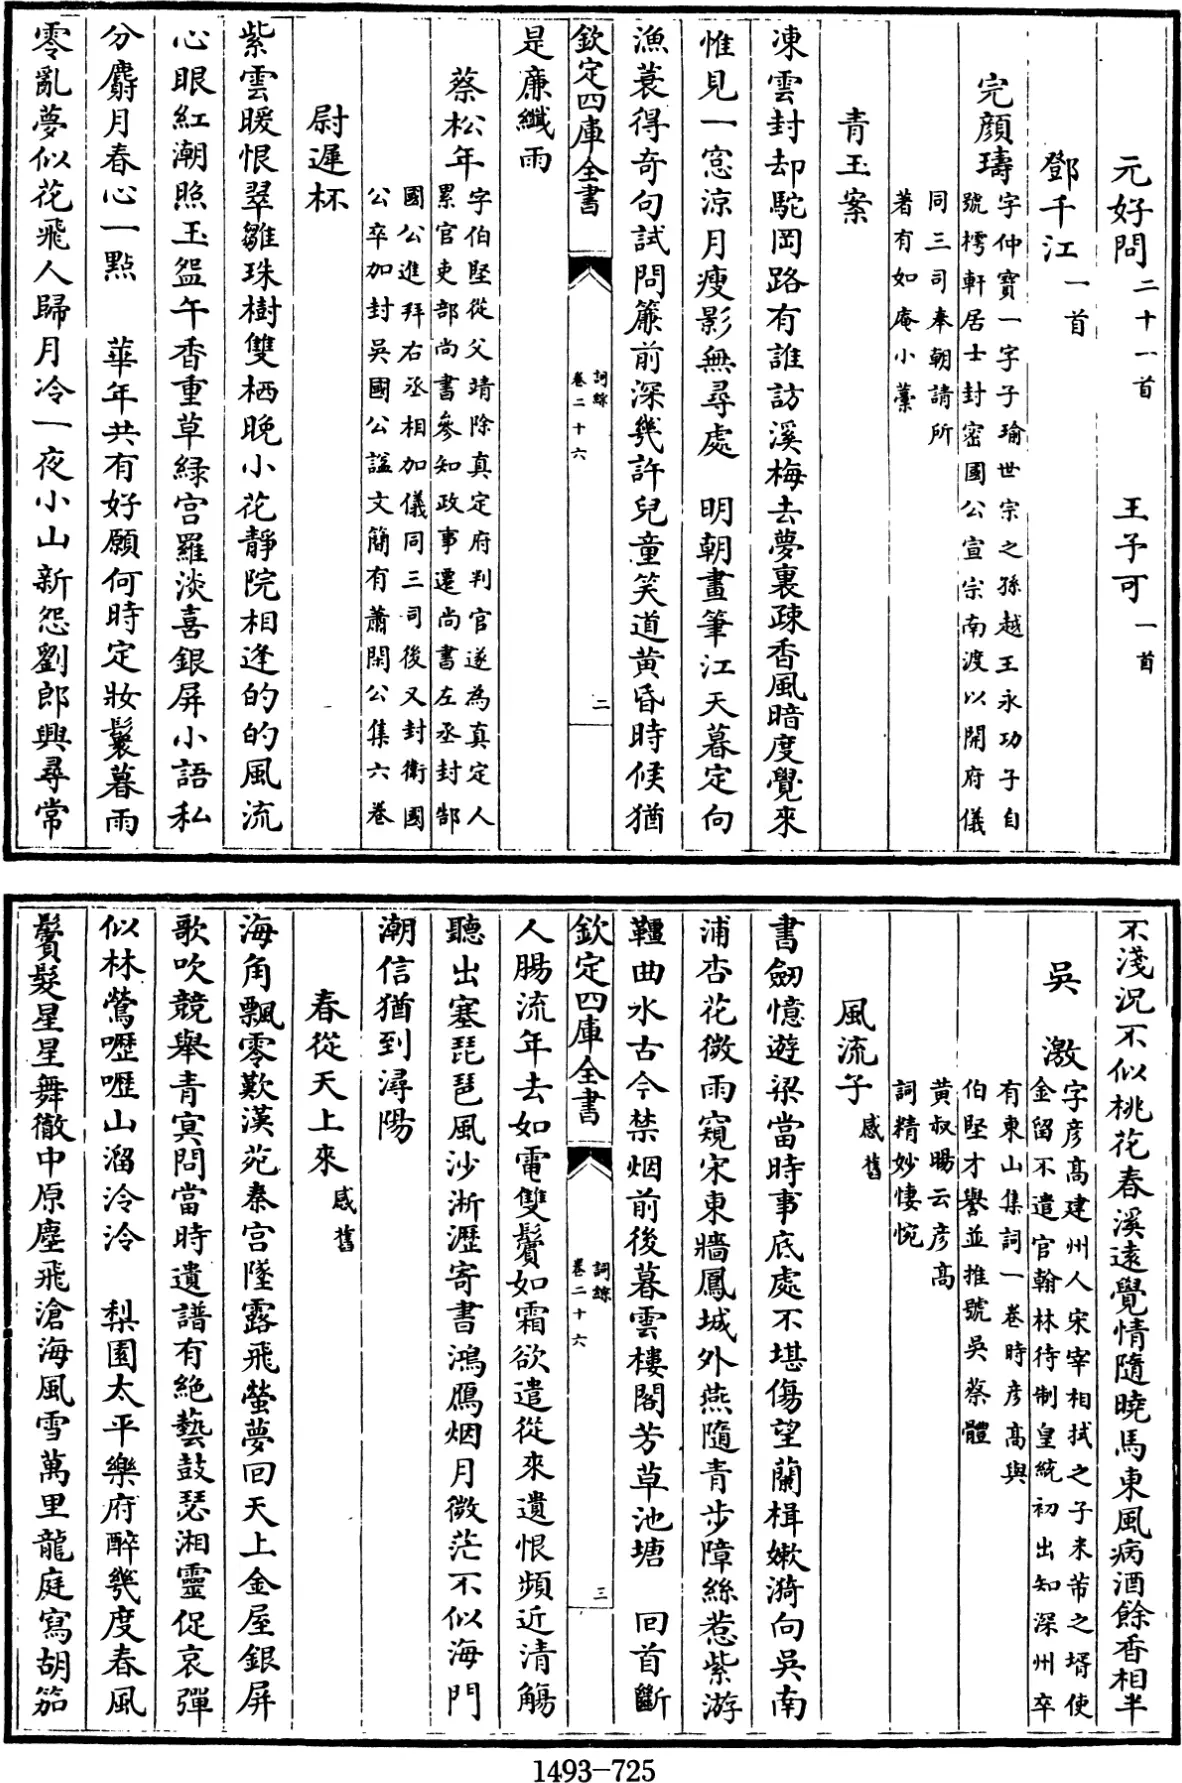 元好問二十一首　王予可一首
鄧千江一首
完顔璹字仲寳一字子瑜世宗之孫越王永功子自
號樗軒居士封密國公宣宗南渡以開府儀
同三司奉朝請所
著有如庵小藳
青玉案
凍雲封却駝岡路有誰訪溪梅去夢裏疎香風暗度覺來
惟見一窓涼月瘦影無尋處　明朝畫筆江天暮定向
漁蓑得奇句試問簾前深幾許兒童笑道黄昏時候猶
欽定四庫全書　詞綜卷二十六　二
是廉纖雨
蔡松年字伯堅從父靖除真定府判官遂為真定人
累官吏部尚書參知政事遷尚書左丞封郜
國公進拜右丞相加儀同三司後又封衛國
公卒加封吳國公諡文簡有蕭閑公集六卷
尉遲杯
紫雲暖恨翠雛珠樹雙栖晚小花靜院相逢的的風流
心眼紅潮照玉盌午香重草緑宫羅淡喜銀屏小語私
分麝月春心一點　華年共有好願何時定妝鬟暮雨
零亂夢似花飛人歸月冷一夜小山新怨劉郎興尋常
不淺況不似桃花春溪遠覺情隨曉馬東風病酒餘香相半
吳　激字彦高建州人宋宰相拭之子米芾之壻使
金留不遣官翰林待制皇統初出知深州卒
有東山集詞一卷時彦高與
伯堅才譽並推號吳蔡體
黄叔暘云彦高
詞精妙悽惋
風流子感舊
書劒憶遊梁當時事底處不堪傷望蘭楫嫰漪向吳南
浦杏花微雨窺宋東牆鳳城外燕隨青步障絲惹紫游
韁曲水古今禁烟前後暮雲樓閣芳草池塘　回首斷
欽定四庫全書　詞綜卷二十六　三
人腸流年去如電雙鬢如霜欲遣從來遺恨頻近清觴
聽出塞琵琶風沙淅瀝寄書鴻鴈烟月微茫不似海門
潮信猶到潯陽
春從天上來感舊
海角飄零歎漢苑秦宫墜露飛螢夢回天上金屋銀屏
歌吹競舉青冥問當時遺譜有絶藝鼓瑟湘靈促哀彈
似林鶯嚦嚦山溜泠泠　梨園太平樂府醉幾度春風
鬢髮星星舞徹中原塵飛滄海風雪萬里龍庭寫胡笳
1493—725